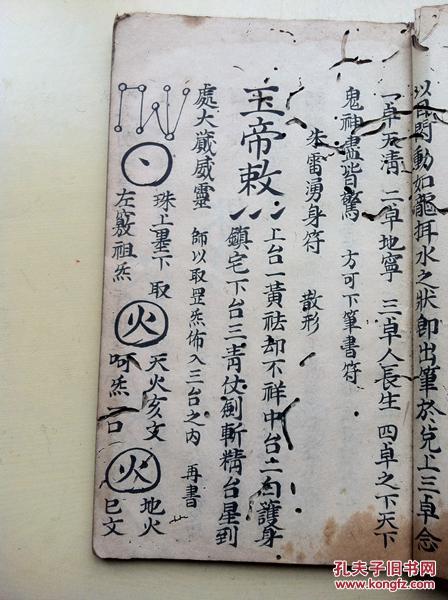 以目對動如龍揖水之狀即出筆於兌上三卓念
一卓天清 二卓地寧 三卓人長生 四卓之下天下
鬼神盡皆驚 方可下筆書符
朱雷湧身符 散形
玉帝敕
上台一黃祛却不祥中台二白護身
鎮宅下台三青仗劍斬精台星到
處大藏威靈 師以取罡炁佈入三台之內 再書
珠上墨下 取
左竅祖炁
火
天火亥文
呵炁一口
火
地火
巳文
孔夫子旧书网
kongfz.com